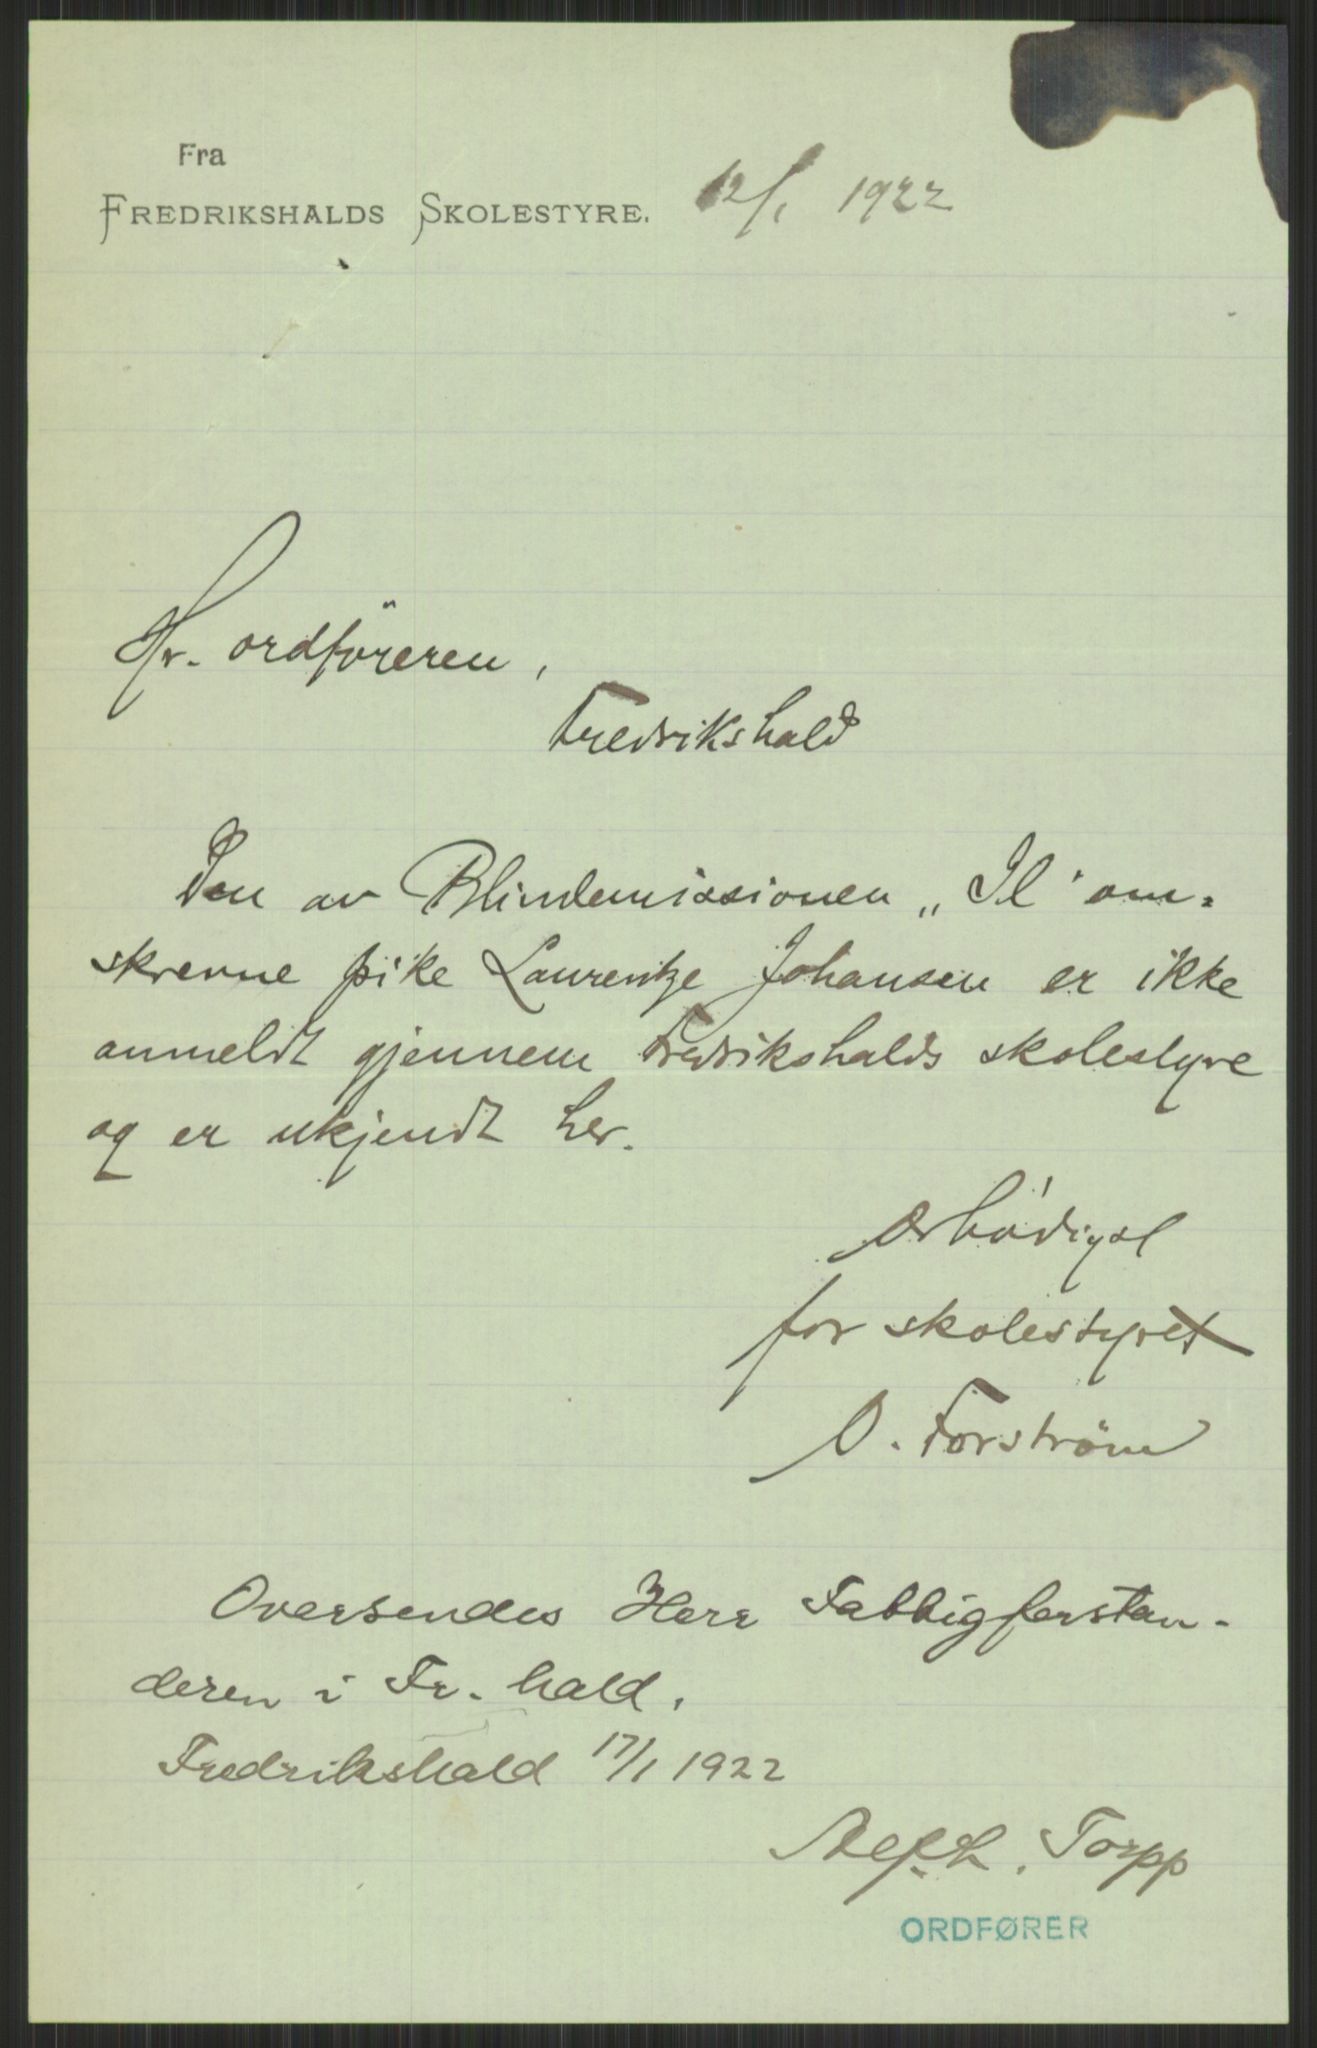 Fra
FREDRIKSHALDS SKOLESTYRE. 12/1 1922
Hr. ordföreren,
Fredrikshald
Den av Blindemissionen „Il" om-
skrevne pike Laurentze Johansen er ikke
anmeldt gjennem Fredrikshalds skolestyre
og er ukjendt her.
Ærbödigst
for skolestyret
O. Forström
Oversendes Herr Fattigforstan-
deren i Fr. hald.
Fredrikshald 17/1 1922
Torpp
ORDFØRER